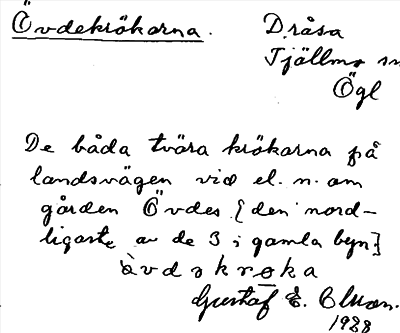 Övdekrökarna.
Dråsa
Tjällmo sn
Ögl
De båda tvära krökarna på
landsvägen vid el. n. om
gården Övdes [den nord-
ligaste av de 3 i gamla byn]
àvdəkrøka
Gustaf E. Olsson.
1928